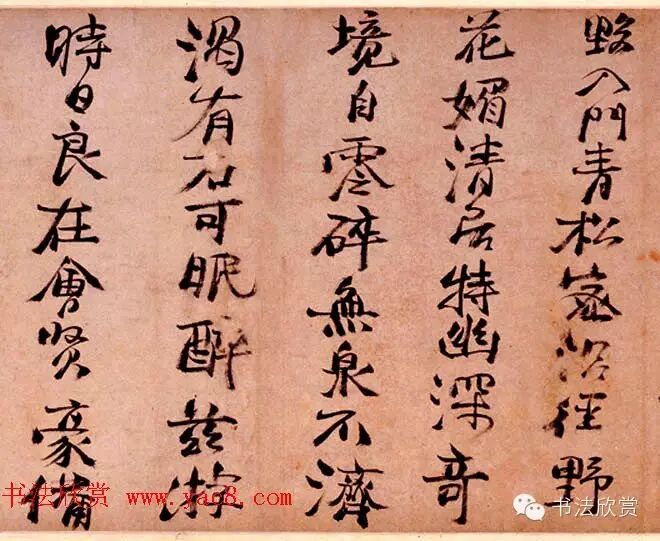 入門青松密沿徑野
花媚清居特幽深奇
境自零碎無泉不濟
渴有石可眠醉茲游
時日良在會賢豪備
书法欣赏 www.yac8.com
书法欣赏